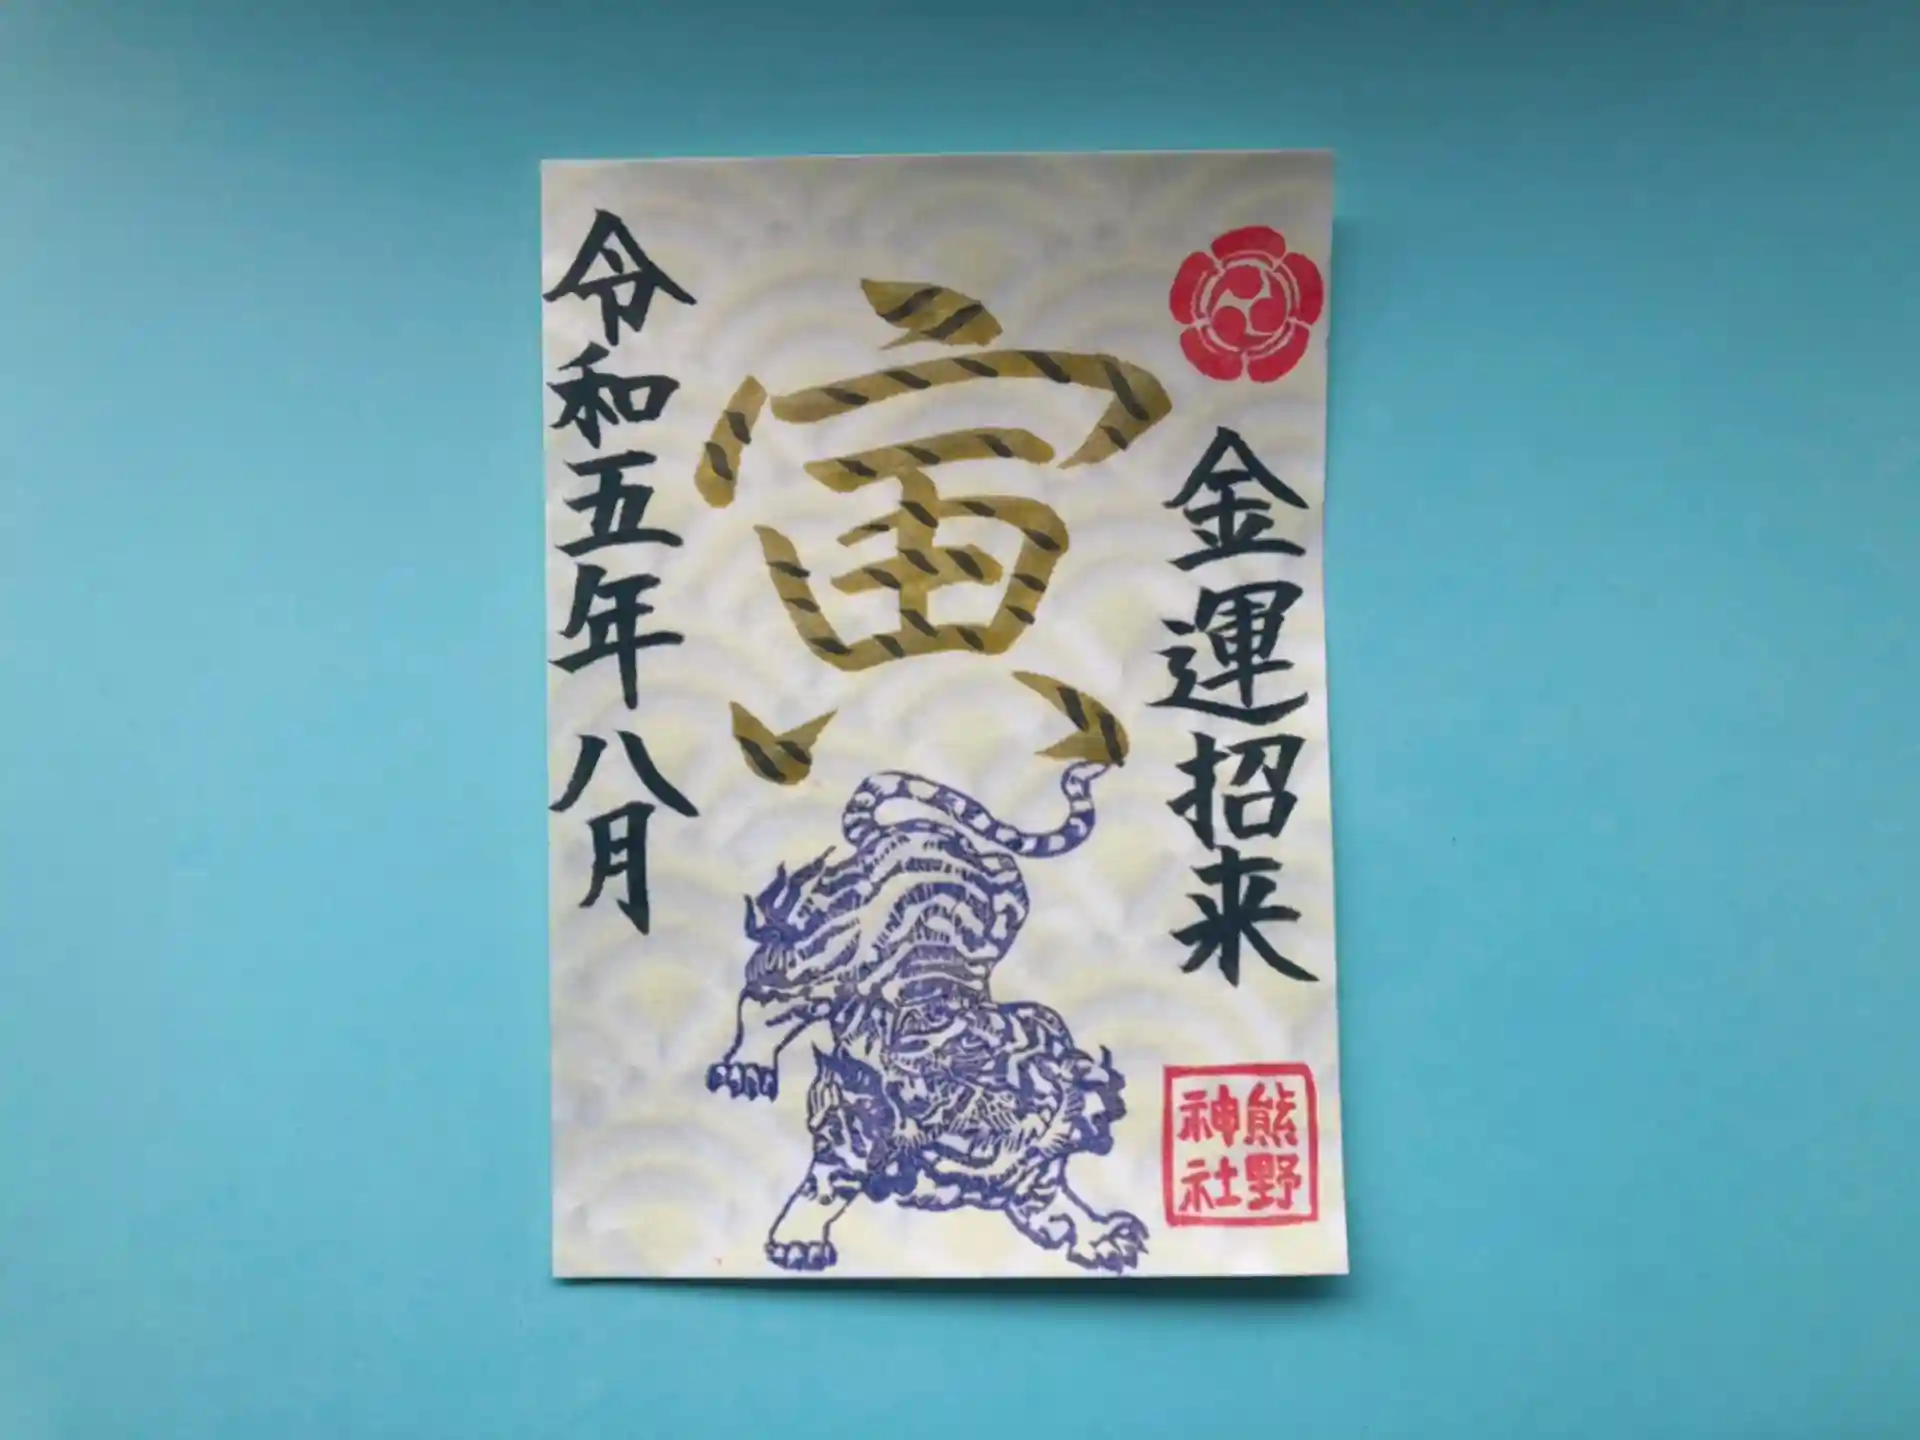 金運招来
寅
令和五年八月
熊野
神社